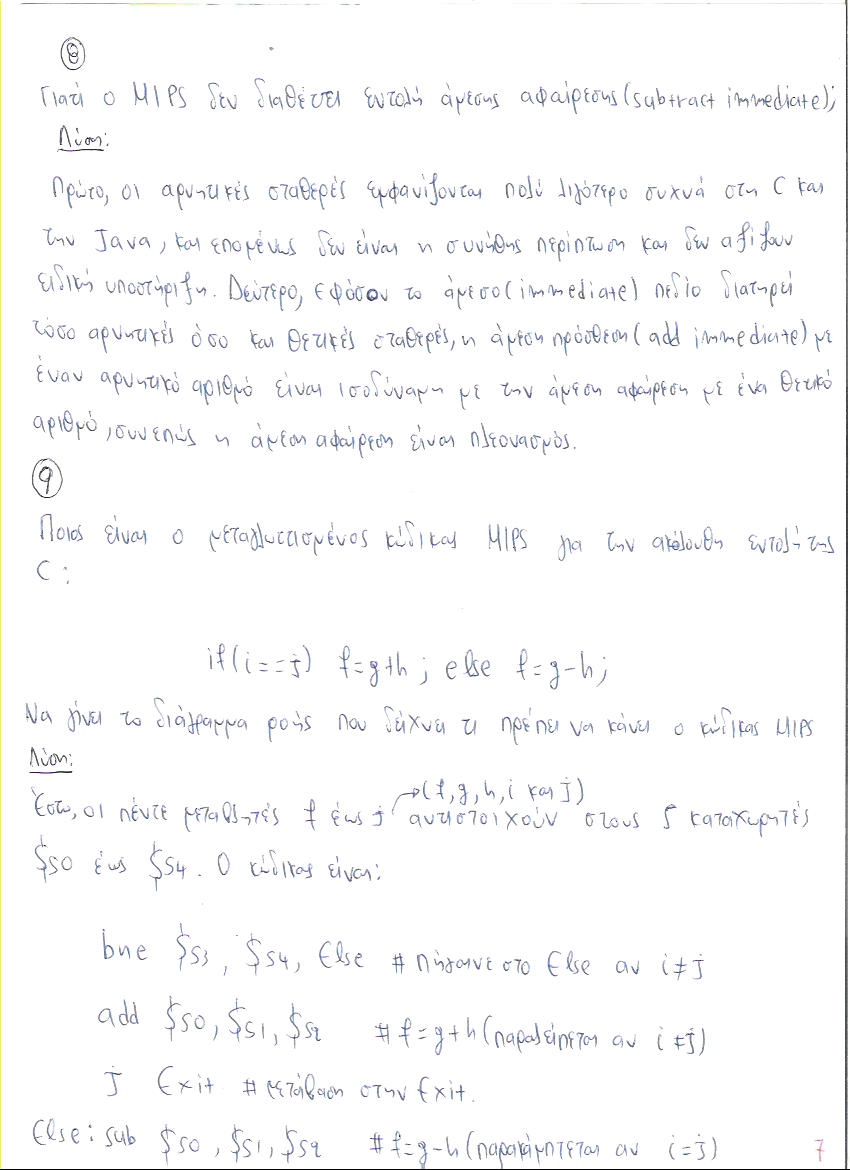 ⑧
Γιατί ο MIPS δεν διαθέτει εντολή άμεσης αφαίρεσης (subtract immediate);
Λύση:
Πρώτο, οι αρνητικές σταθερές εμφανίζονται πολύ λιγότερο συχνά στη C και
την Java, και επομένως δεν είναι η συνήθης περίπτωση και δεν αξίζουν
ειδική υποστήριξη. Δεύτερο, εφόσον το άμεσο (immediate) πεδίο διατηρεί
τόσο αρνητικές όσο και θετικές σταθερές, η άμεση πρόσθεση (add immediate) με
έναν αρνητικό αριθμό είναι ισοδύναμη με την άμεση αφαίρεση με ένα θετικό
αριθμό, συνεπώς η άμεση αφαίρεση είναι πλεονασμός.
⑨
Ποιος είναι ο μεταγλωττισμένος κώδικας MIPS για την ακόλουθη εντολή της
C:
if(i==j) f=g+h; else f=g-h;
Να γίνει το διάγραμμα ροής που δείχνει τι πρέπει να κάνει ο κώδικας MIPS
Λύση:
→(f,g,h,i και j)
Έστω, οι πέντε μεταβλητές f έως j αντιστοιχούν στους 5 καταχωρητές
$s0 έως $s4. Ο κώδικας είναι:
bne $s3, $s4, Else # πήγαινε στο Else αν i≠j
add $s0, $s1, $s2 # f=g+h (παραλείπεται αν i≠j)
j Exit # μετάβαση στην Exit.
Else: sub $s0, $s1, $s2 # f=g-h (παρακάμπτεται αν i=j)
7